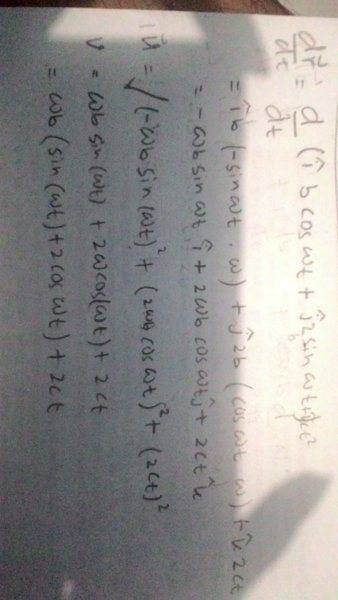 dr⃗/dt = d/dt (î b cos ωt + ĵ 2 sin ωt + k̂ ct²
= î b (-sin ωt . ω) + ĵ 2b (cos ωt ω) + k̂ 2ct
= - ωb sin ωt î + 2ωb cos ωt ĵ + 2ct k̂
|v⃗| = √(-ωb sin(ωt))² + (2ωb cos ωt)² + (2ct)²
v = ωb sin(ωt) + 2ω cos(ωt) + 2ct
= ωb (sin(ωt) + 2 cos ωt) + 2ct